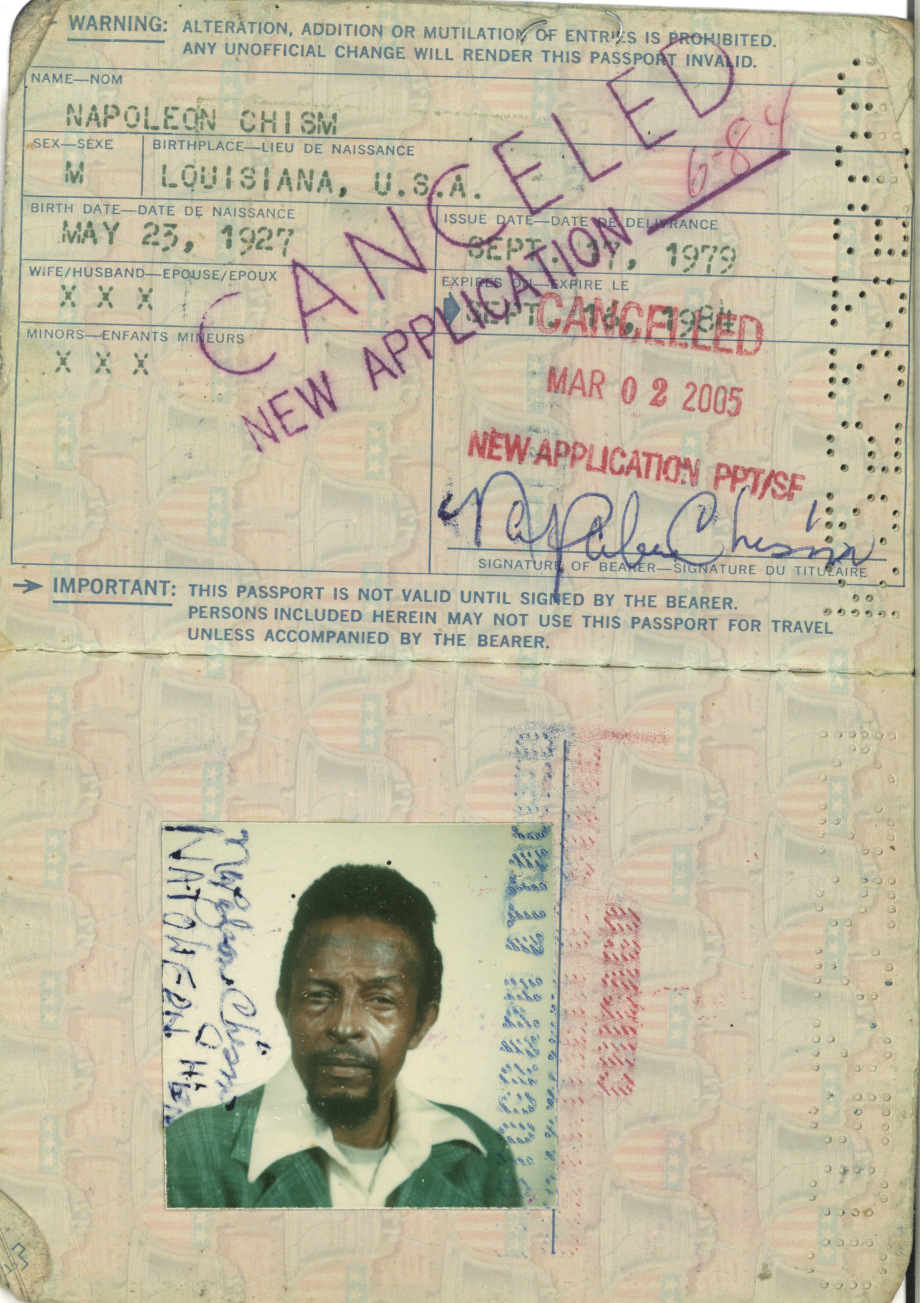 WARNING: ALTERATION, ADDITION OR MUTILATION OF ENTRIES IS PROHIBITED.
ANY UNOFFICIAL CHANGE WILL RENDER THIS PASSPORT INVALID.
NAME—NOM
NAPOLEON CHISM
SEX—SEXE
BIRTHPLACE—LIEU DE NAISSANCE
M
LOUISIANA, U.S.A.
BIRTH DATE—DATE DE NAISSANCE
MAY 23, 1927
ISSUE DATE—DATE DE DELIVRANCE
SEPT. 17, 1979
WIFE/HUSBAND—EPOUSE/EPOUX
X X X
EXPIRES ON—EXPIRE LE
SEPT. 16, 1984
MINORS—ENFANTS MINEURS
X X X
CANCELED
NEW APPLICATION
6-84
CANCELLED
MAR 02 2005
NEW APPLICATION PPT/SF
Napoleon Chism
SIGNATURE OF BEARER—SIGNATURE DU TITULAIRE
→ IMPORTANT: THIS PASSPORT IS NOT VALID UNTIL SIGNED BY THE BEARER.
PERSONS INCLUDED HEREIN MAY NOT USE THIS PASSPORT FOR TRAVEL
UNLESS ACCOMPANIED BY THE BEARER.
Napoleon Chism